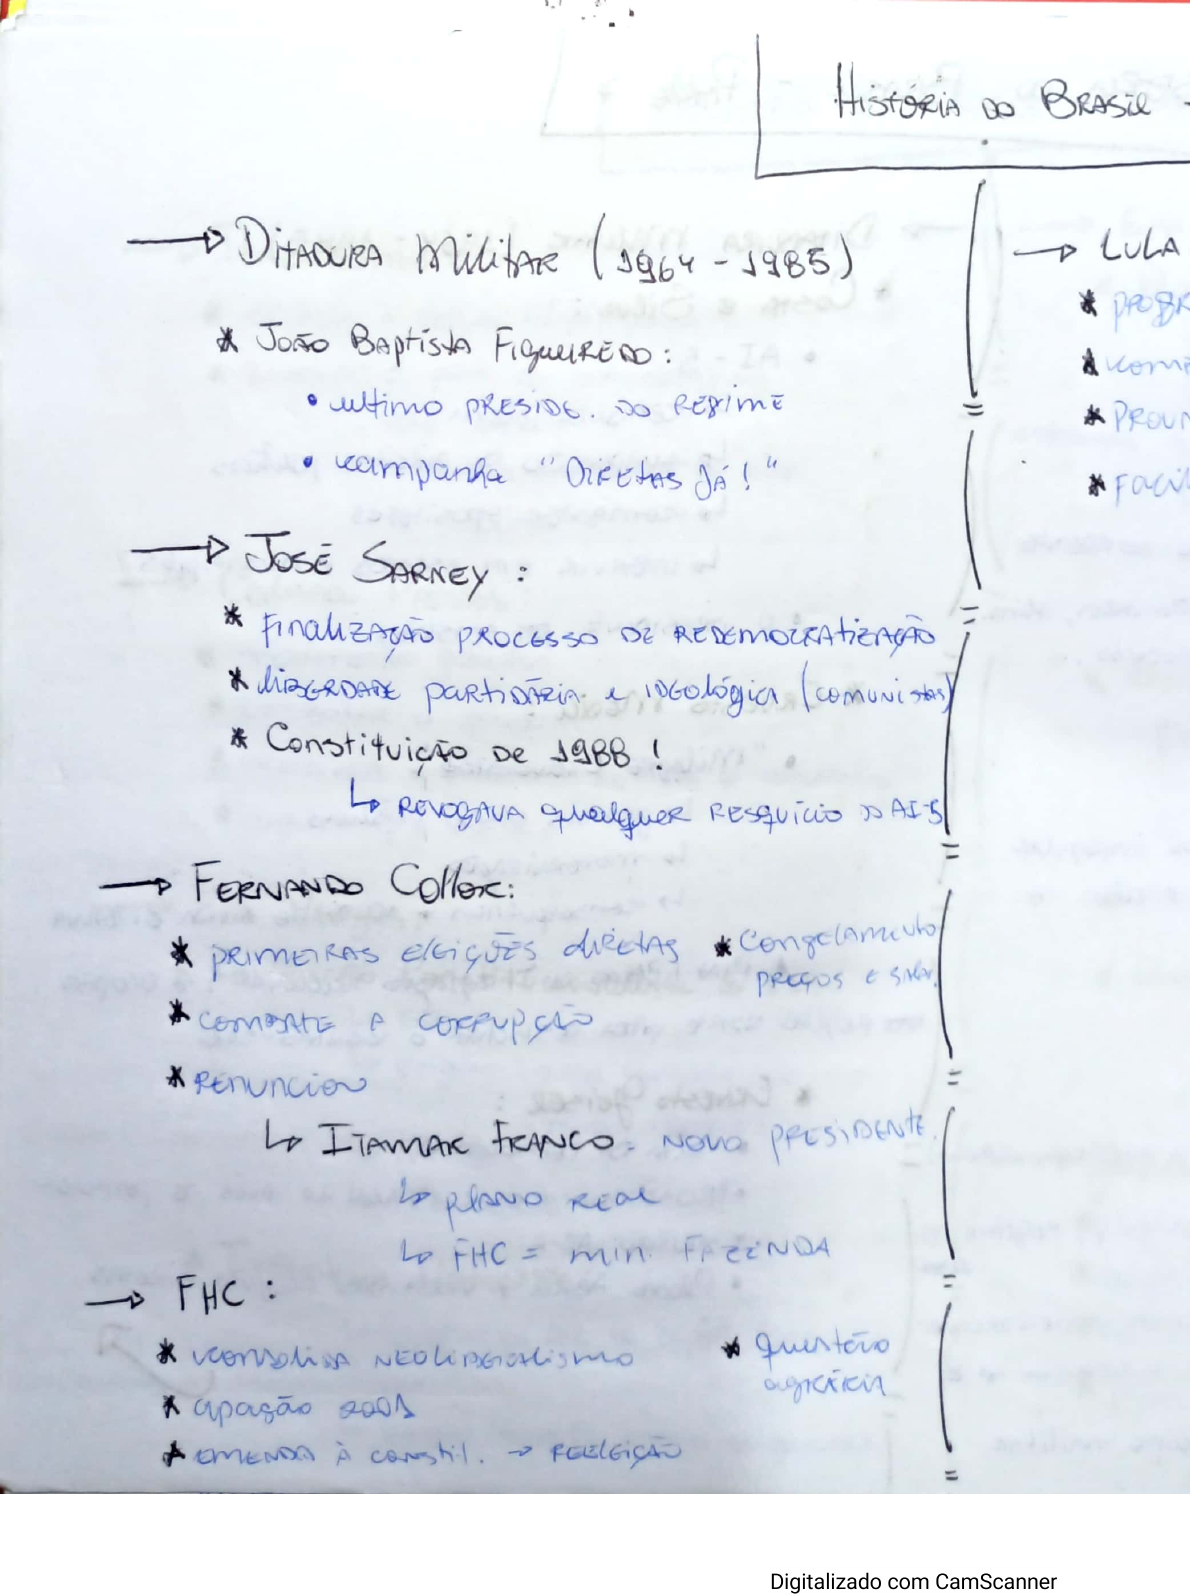 História do Brasil -
→ Ditadura Militar (1964 - 1985)
* João Baptista Figueiredo:
• ultimo presid. do regime
• campanha "Diretas Já!"
→ José Sarney:
* finalização processo de redemocratização
* liberdade partidária e ideológica (comunistas)
* Constituição de 1988!
↳ revogava qualquer resquício do AI-5
→ Fernando Collor:
* primeiras eleições diretas
* combate a corrupção
* renunciou
* Congelamento
preços e salár.
↳ Itamar Franco - novo presidente.
↳ plano real
↳ FHC = min. Fazenda
→ FHC:
* consolida neoliberalismo
* apagão 2001
* emenda à constit. → reeleição
* questão
agrária
→ Lula
* progr
* come
* Proun
* facil
Digitalizado com CamScanner